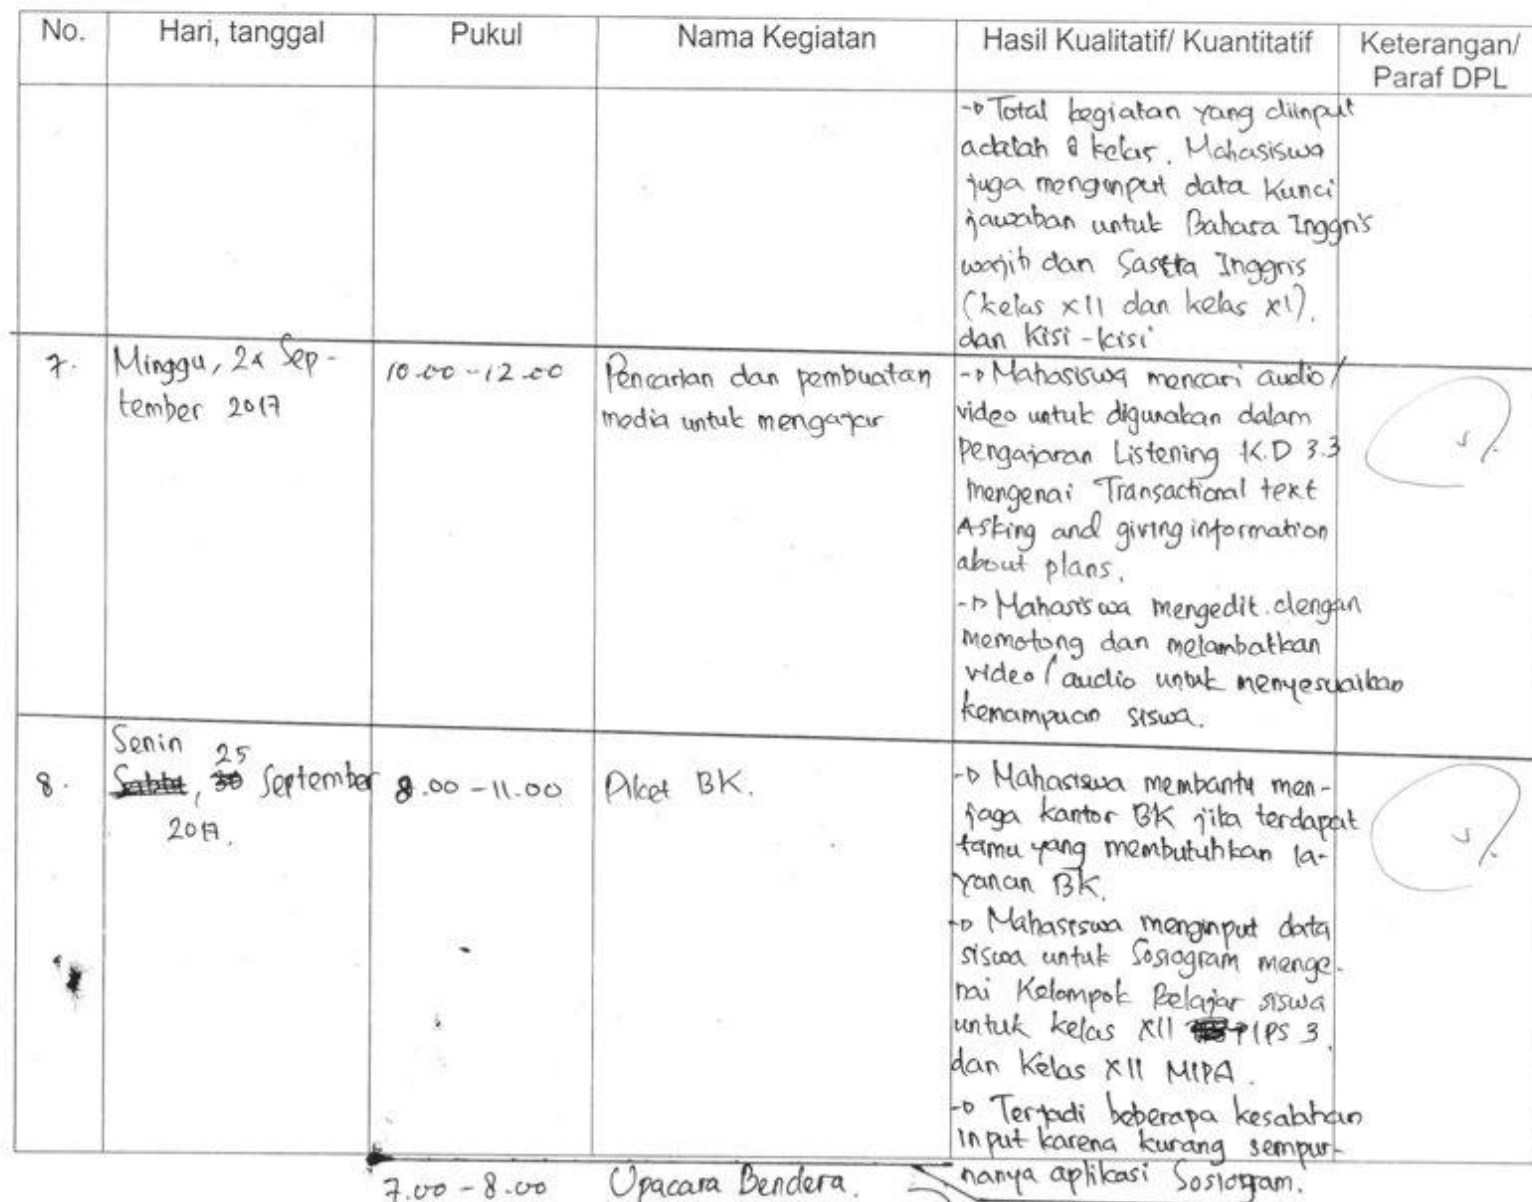 No. Hari, tanggal Pukul Nama Kegiatan Hasil Kualitatif/ Kuantitatif Keterangan/
Paraf DPL
-> Total kegiatan yang diinput
adalah 8 kelas. Mahasiswa
juga menginput data kunci
jawaban untuk Bahasa Inggris
wajib dan Sastra Inggris
(kelas XII dan kelas XI).
dan Kisi-kisi
7. Minggu, 24 Sep-
tember 2017
10.00 - 12.00
Pencarian dan pembuatan
media untuk mengajar
-> Mahasiswa mencari audio/
video untuk digunakan dalam
pengajaran Listening K.D 3.3
mengenai Transactional text
Asking and giving information
about plans.
-> Mahasiswa mengedit dengan
memotong dan melambatkan
video / audio untuk menyesuaikan
kemampuan siswa.
8. Senin
Sabtu, 30 25 September
2017.
8.00 - 11.00
Piket BK.
-> Mahasiswa membantu men-
jaga kantor BK jika terdapat
tamu yang membutuhkan la-
yanan BK.
-> Mahasiswa menginput data
siswa untuk Sosiogram menge-
nai Kelompok Belajar siswa
untuk kelas XII IPS 3
dan Kelas XII MIPA.
-> Terjadi beberapa kesalahan
input karena kurang sempur-
nanya aplikasi Sosiogram.
7.00 - 8.00 Upacara Bendera.